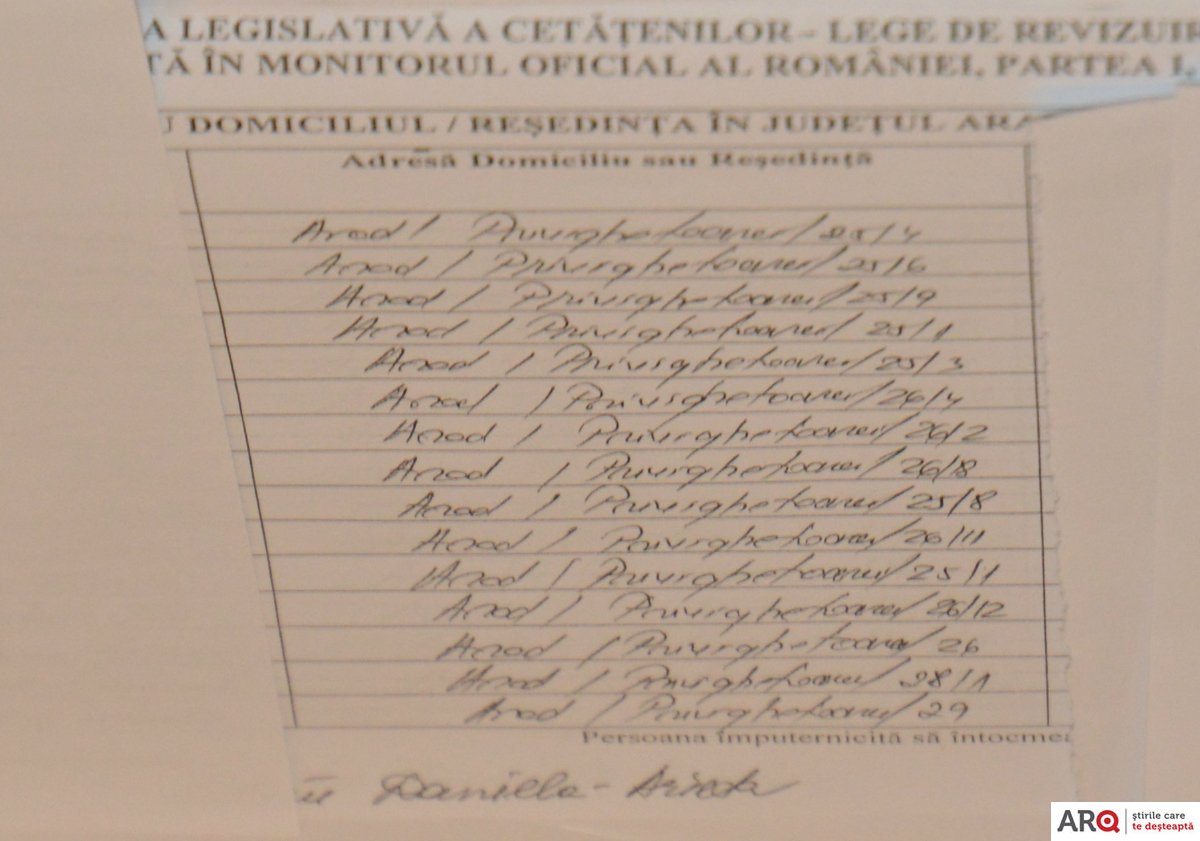 A LEGISLATIVĂ A CETĂȚENILOR - LEGE DE REVIZUIR
TĂ ÎN MONITORUL OFICIAL AL ROMÂNIEI, PARTEA I,
U DOMICILIUL / REȘEDINȚA ÎN JUDEȚUL ARA
Adresă Domiciliu sau Reședință
Arad / Privighetoarei / 25/4
Arad / Privighetoarei / 25/6
Arad / Privighetoarei / 25/9
Arad / Privighetoarei / 25/1
Arad / Privighetoarei / 25/3
Arad / Privighetoarei / 26/4
Arad / Privighetoarei / 26/2
Arad / Privighetoarei / 26/8
Arad / Privighetoarei / 25/8
Arad / Privighetoarei / 26/11
Arad / Privighetoarei / 25/1
Arad / Privighetoarei / 26/12
Arad / Privighetoarei / 26
Arad / Privighetoarei / 28/1
Arad / Privighetoarei / 29
Persoana împuternicită să întocme
Daniela -
ARQ știrile care
te deșteaptă